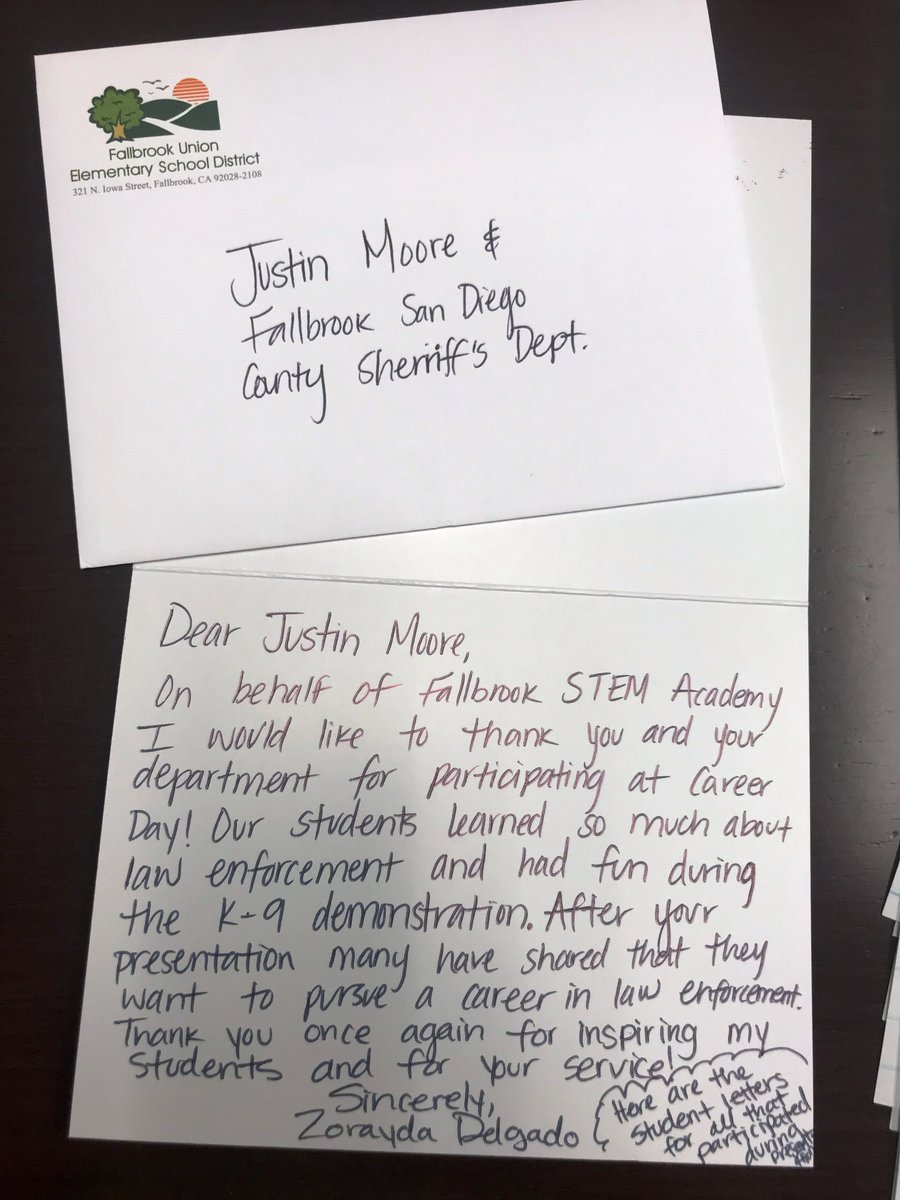 Fallbrook Union
Elementary School District
321 N. Iowa Street, Fallbrook, CA 92028-2108
Justin Moore &
Fallbrook San Diego
County Sherriff's Dept.
Dear Justin Moore,
On behalf of Fallbrook STEM Academy
I would like to thank you and your
department for participating at Career
Day! Our students learned so much about
law enforcement and had fun during
the K-9 demonstration. After your
presentation many have shared that they
want to pursue a career in law enforcement.
Thank you once again for inspiring my
students and for your service!
Sincerely,
Zorayda Delgado
Here are the
student letters
for all that
participated
during